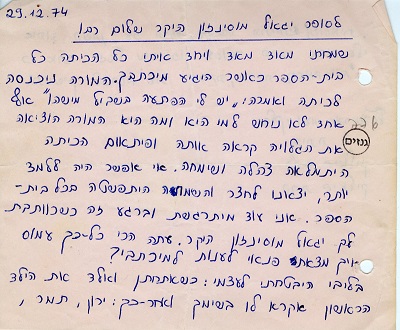 29.12.74
לסופר יגאל מוסינזון היקר שלום רב!
שמחתי מאוד מאד ויחד איתי כל הכיתה כל
בית-הספר כאשר היגיע מיכתבך. המורה ניכנסה
לכיתה ואמרה: "יש לי הפתעה בשביל מישהו" אף
אחד לא ניחש למי היא ומה היא המורה הוציאה
את הגלויה קראה אותה ופיתאום הכיתה
היתמלאה צהלה ושימחה. אי אפשר היה ללמד
יותר, יצאנו לחצר והשמועה היתפשטה בכל בית-
הספר. אני עוד מיתרגשת וברגע זה כשכותבת
לך יגאל מוסינזון היקר. עתה הרי כל-כך עמוס
איך מצאת פנאי לענות למיכתבי?
בליבי היבטחתי לעצמי: כשאתחתן ואולד את הילד
הראשון אקרא לו בשימך ואחר-כך: ירון, תמר,
גנזים